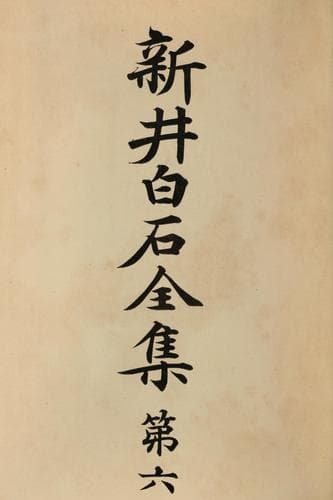 新井白石全集 第六